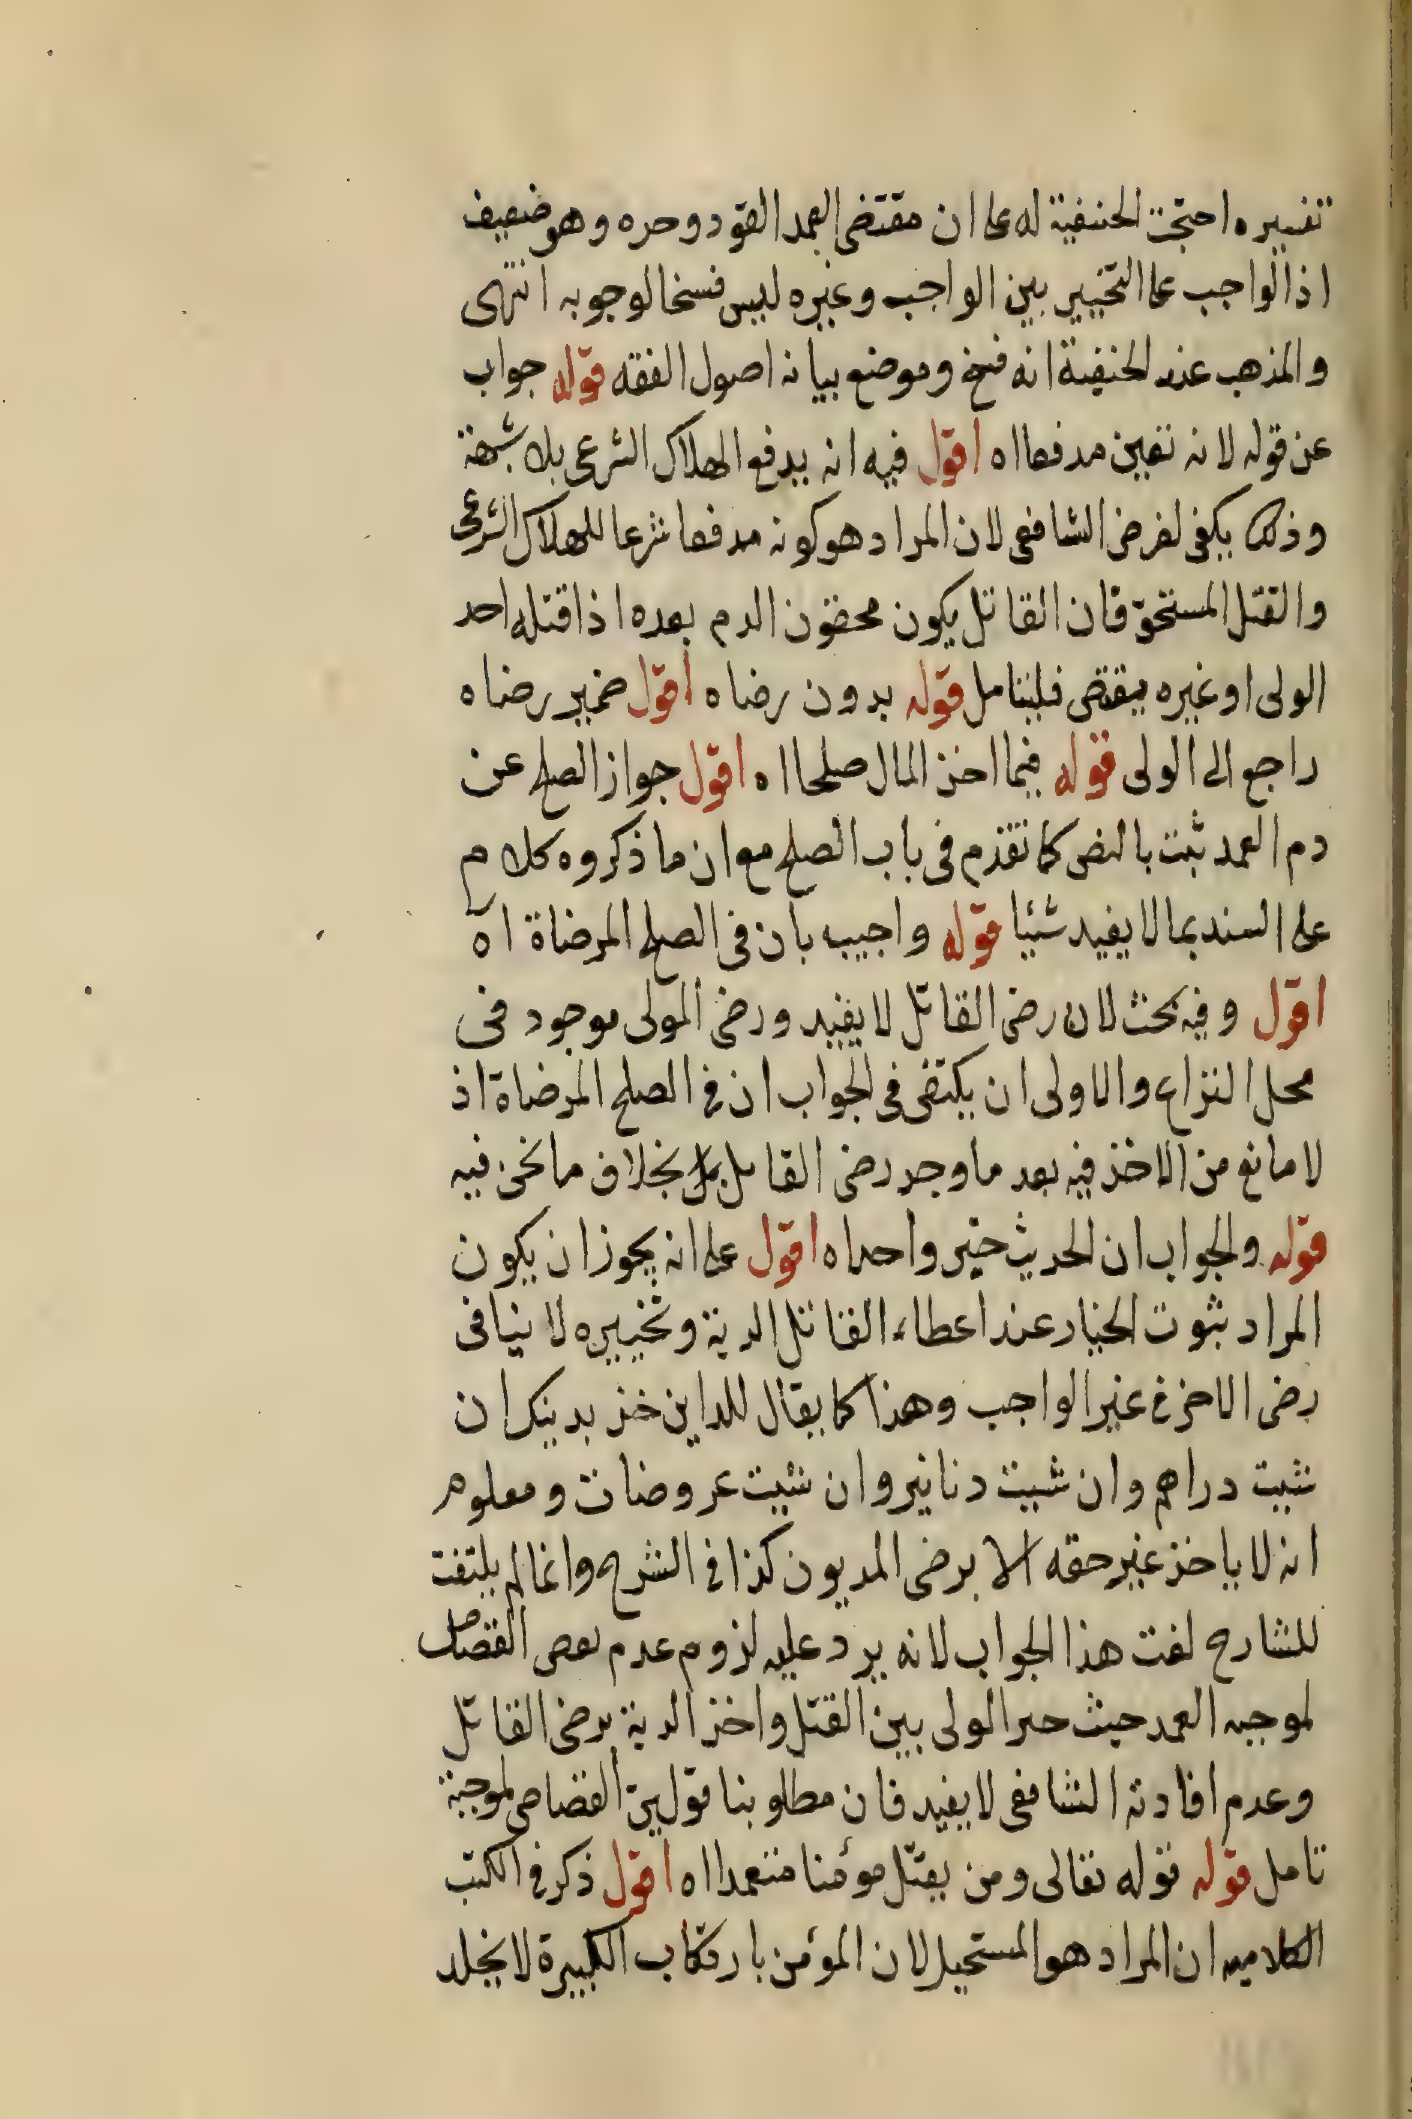 تفسيره احتجت الحنفية له على ان مقتضى العمد القود وحده وهو ضعيف
اذ الواجب على التخيير بين الواجب وغيره ليس فسخا لوجوبه انتهى
والمذهب عند الحنفية انه فسخ وموضع بيانه اصول الفقه قوله جواب
عن قوله لانه تعين مدفعا اه اقول فيه انه يدفع الهلاك الشرعى بلا شبهة
وذلك يكفى لغرض الشافعى لان المراد هو كونه مدفعا شرعا للهلاك الشرعى
والقتل المستحق فان القاتل يكون محقون الدم بعده اذا قتله احد
الولى او غيره يقتص فليتامل قوله بدون رضاه اقول ضمير رضاه
راجع الى الولى قوله فيما اخذ المال صلحا اه اقول جواز الصلح عن
دم العمد ثبت بالنص كما تقدم فى باب الصلح مع ان ما ذكروه كلام
على السند بما لا يفيد شيئا قوله واجيب بان فى الصلح المرضاة اه
اقول وفيه بحث لان رضى القاتل لا يفيد ورضى المولى موجود فى
محل النزاع والاولى ان يكتفى فى الجواب ان فى الصلح المرضاة اذ
لا مانع من الاخذ فيه بعد ما وجد رضى القاتل بخلاف ما نحن فيه
قوله والجواب ان الحديث خبر واحد اه اقول على انه يجوز ان يكون
المراد ثبوت الخيار عند اعطاء القاتل الدية وتخييره لا ينافى
رضى الاخر فى غير الواجب وهذا كما يقال للداين خذ بدينك ان
شيت دراهم وان شيت دنانير وان شيت عروضات ومعلوم
انه لا ياخذ غير حقه الا برضى المديون كذا فى الشرح وانما لم يلتفت
للشارح لفت هذا الجواب لانه يرد عليه لزوم عدم القصاص
لموجبه العمد حيث خير الولى بين القتل واخذ الدية برضى القاتل
وعدم افادته الشافعى لا يفيد فان مطلوبنا القصاص لموجبه
تامل قوله قوله تعالى ومن يقتل مؤمنا متعمدا اه اقول ذكر فى الكتب
الكلاميه ان المراد هو المستحيل لان المؤمن بارتكاب الكبيرة لا يخلد